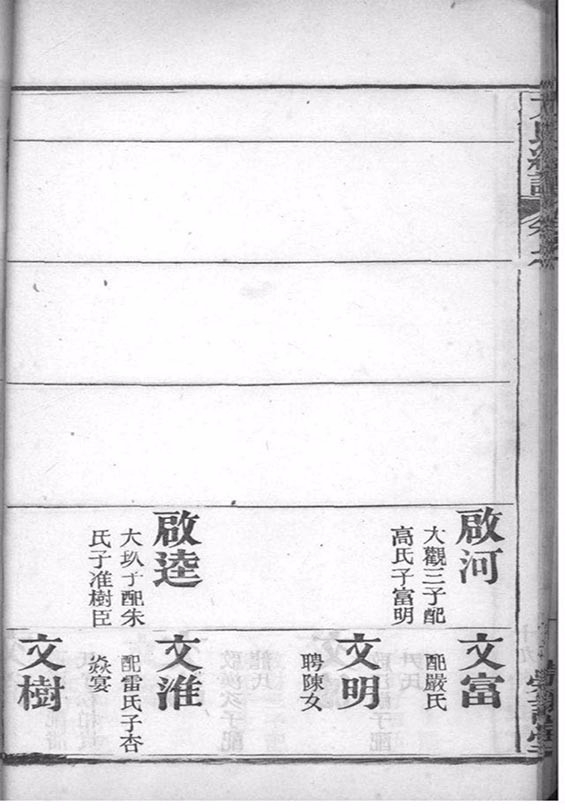 啟河
大觀三子配
高氏子富明
啟逵
大玖子配朱
氏子准樹臣
文富
配嚴氏
文明
聘陳女
文淮
配雷氏子杏
焱宴
文樹